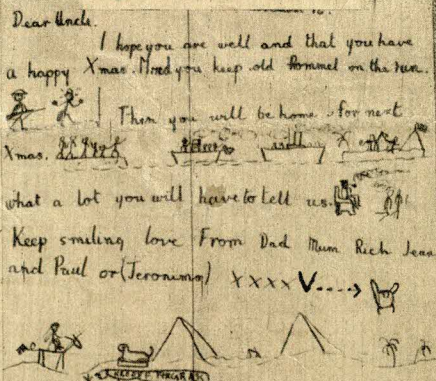 Dear Uncle.
I hope you are well and that you have
a happy Xmas. Mind you keep old Rommel on the run.
Then you will be home for next
Xmas.
what a lot you will have to tell us.
Keep smiling love From Dad Mum Rich Jean
and Paul or (Jeronimo) XXXX V